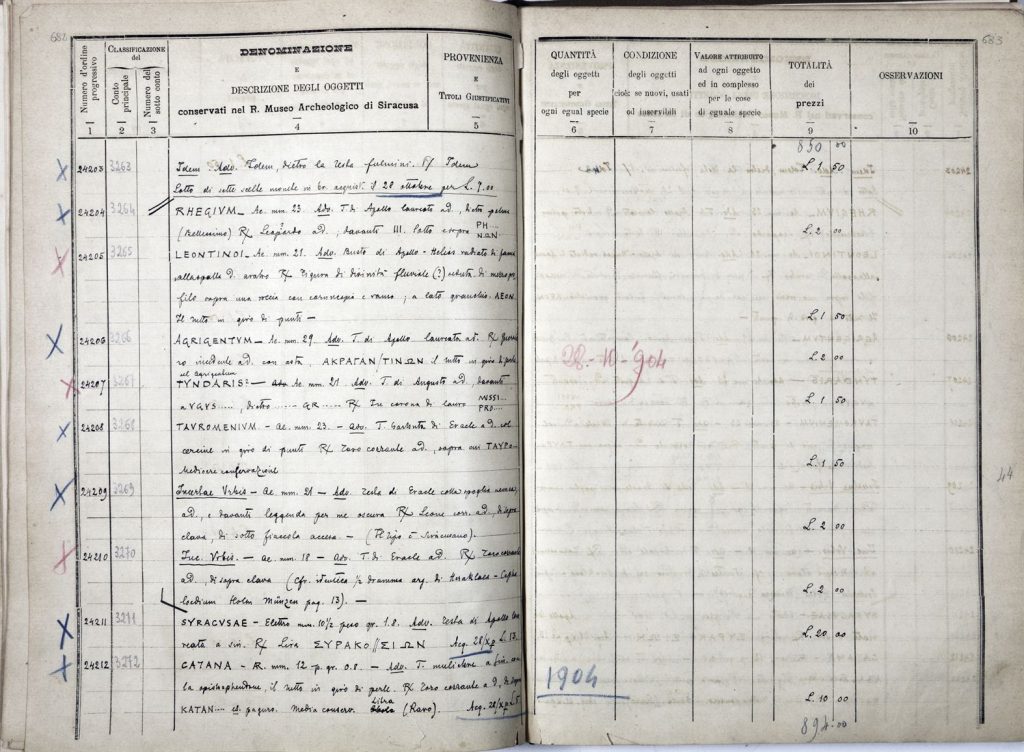 682
Numero d'ordine progressivo
CLASSIFICAZIONE del
Conto principale
Numero del sotto conto
DENOMINAZIONE
E
DESCRIZIONE DEGLI OGGETTI
conservati nel R. Museo Archeologico di Siracusa
PROVENIENZA
E
TITOLI GIUSTIFICATIVI
1 2 3 4 5
24203 3263 Idem. Adv. Idem, dietro la testa fulmini. R/ Idem
Lotto di sette scelte monete in br. acquisti il 28 ottobre per L. 9.00
24204 3264 RHEGIVM – Ae. mm. 23. Adv. T. di Apollo laureata ad., dietro
(Bellissimo) R/ Leopardo ad.; davanti III. Sotto e sopra PH... NΩN...
24205 3265 LEONTINOI – Ae. mm. 21. Adv. Busto di Apollo-Helios radiato di
alla spalla d. aratro R/ Figura di divinità fluviale (?) seduta di mezzo pro
filo sopra una roccia con cornucopia e ramo; a lato granchio. ΛEON.
Il tutto in giro di punti –
24206 3266 AGRIGENTVM – Ae. mm. 29. Adv. T. di Apollo laureata ad. R/ Guerrie
ro incedente ad. con asta, AKPAΓAN/TINΩN il tutto in giro di perle
vel Agrigentum
24207 3267 TYNDARIS? – Ae. mm. 21 Adv. T. di Augusto ad., davanti
aVGVS...., dietro ...... GR.... R/ In corona di lauro MVSSI... PRO....
24208 3268 TAVROMENIVM. – Ae. mm. 23. – Adv. T. barbuta di Eracle ad. col
cercine in giro di punti R/ Toro cozzante ad., sopra cui TAYPO–
Mediocre conservazione
24209 3269 Incertae Vrbis – Ae. mm. 21 – Adv. Testa di Eracle colla spoglia
ad., e davanti leggenda per me oscura R/ Leone corr. ad., di sopra
clava, di sotto fiaccola accesa. – (Il tipo è siracusano).
24210 3270 Inc. Vrbis. – Ae. mm. 18 – Adv. T. di Eracle ad. R/ Toro cozzante
ad., di sopra clava (Cfr. identica 1/2 dramma arg. di Heraklaea-Cepha
loedium Holm Münzen pag. 13). –
24211 3271 SYRACVSAE – Elettro mm. 10 1/2 peso gr. 1.8. Adv. Testa di Apollo lau
reata a sin. R/ Lira ΣYPAKO//ΣIΩN Acq. 28/X p L. 13.
24212 3272 CATANA – AR. mm. 12 – p. gr. 0.8. – Adv. T. muliebre a sin. con
la opisphendone, il tutto in giro di perle. R/ Toro cozzante a d., di sopra
KATAN... es. paguro. Media conserv. Litra (Raro). Acq. 28/X p L 5
683
QUANTITÀ
degli oggetti
per
ogni egual specie
CONDIZIONE
degli oggetti
cioè se nuovi, usati
od inservibili
VALORE ATTRIBUITO
ad ogni oggetto
ed in complesso
per le cose
di eguale specie
TOTALITÀ
dei
prezzi
OSSERVAZIONI
6 7 8 9 10
850 00
L. 1 50
L. 2 00
L. 1 50
28-10-904
L 2 00
L. 1 50
L. 1 50
44
L. 2 00
L. 2 00
L. 20 00
1904
L. 10 00
894.00